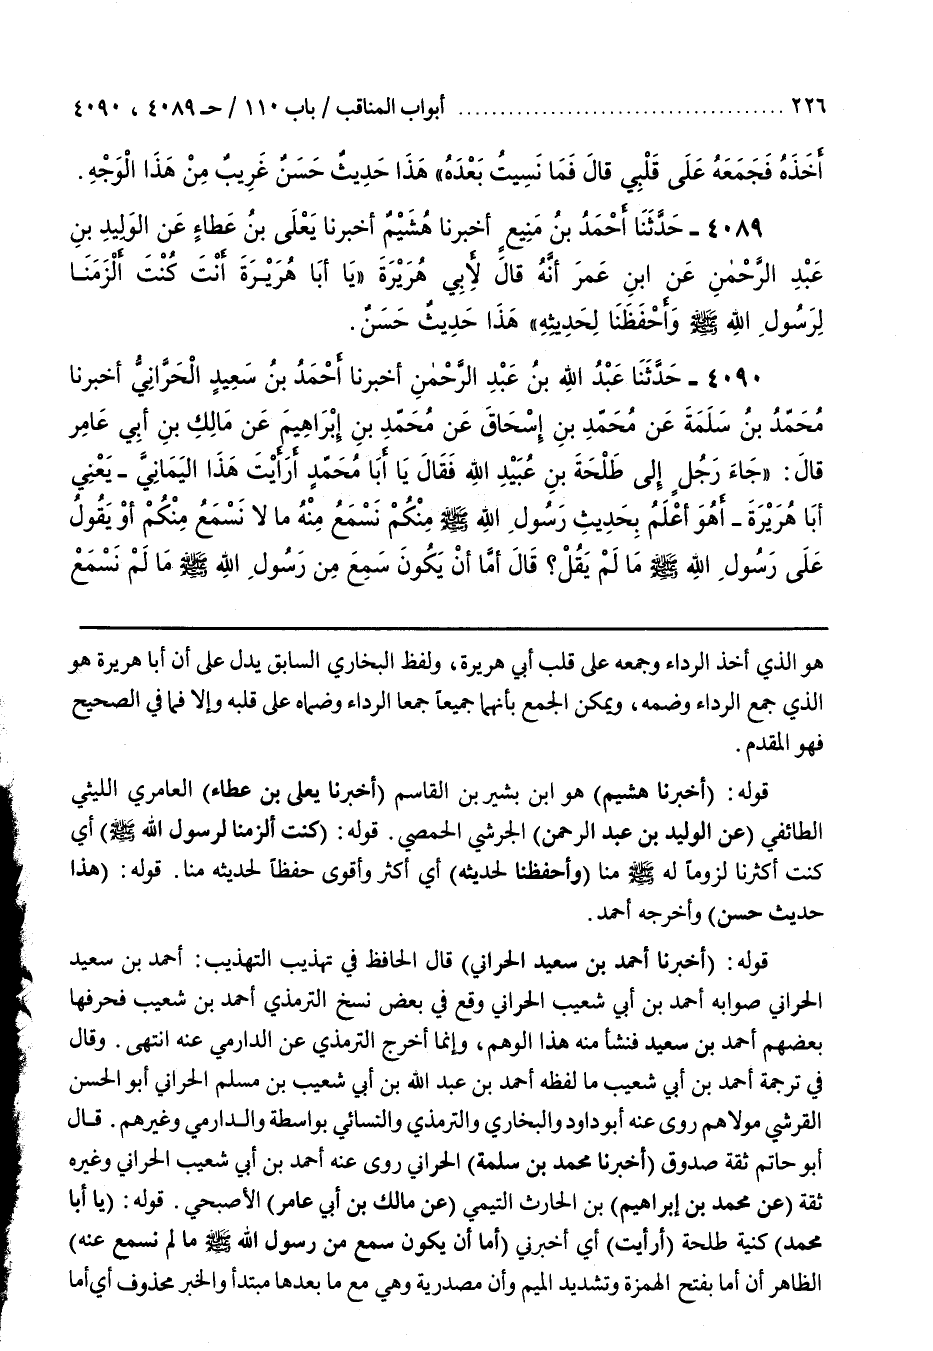 ٢٢٦ ..................................... أبواب المناقب / باب ١١٠ / حـ ٤٠٨٩ ، ٤٠٩٠
أَخَذَهُ فَجَمَعَهُ عَلَى قَلْبِي قالَ فَمَا نَسِيتُ بَعْدَهُ» هَذَا حَدِيثٌ حَسَنٌ غَرِيبٌ مِنْ هَذَا الْوَجْهِ.
٤٠٨٩ ـ حَدَّثَنَا أَحْمَدُ بنُ مَنِيعٍ أخبرنا هُشَيْمٌ أخبرنا يَعْلَى بنُ عَطاءٍ عَن الوَلِيدِ بنِ
عَبْدِ الرَّحْمٰنِ عَن ابنِ عمرَ أنَّهُ قالَ لِأَبِي هُرَيْرَةَ «يَا أبَا هُرَيْرَةَ أَنْتَ كُنْتَ أَلْزَمَنَا
لِرَسُولِ اللهِ ﷺ وَأَحْفَظَنَا لِحَدِيثِهِ» هَذَا حَدِيثٌ حَسَنٌ.
٤٠٩٠ ـ حَدَّثَنَا عَبْدُ اللهِ بنُ عَبْدِ الرَّحْمٰنِ أخبرنا أَحْمَدُ بنُ سَعِيدٍ الْحَرَّانِيُّ أخبرنا
مُحَمَّدُ بنُ سَلَمَةَ عَن مُحَمَّدِ بنِ إِسْحَاقَ عَن مُحَمَّدِ بنِ إِبْرَاهِيمَ عَن مَالِكِ بنِ أبي عَامِرٍ
قالَ: «جَاءَ رَجُلٍ إلى طَلْحَةَ بنِ عُبَيْدِ اللهِ فَقَالَ يَا أبَا مُحَمَّدٍ أَرَأَيْتَ هَذَا اليَمَانِيَّ ـ يَعْنِي
أبَا هُرَيْرَةَ ـ أَهُوَ أعْلَمُ بِحَدِيثِ رَسُولِ اللهِ ﷺ مِنْكُمْ نَسْمَعُ مِنْهُ ما لا نَسْمَعُ مِنْكُمْ أوْ يَقُولُ
عَلَى رَسُولِ اللهِ ﷺ مَا لَمْ يَقُلْ؟ قَالَ أمَّا أنْ يَكُونَ سَمِعَ مِن رَسُولِ اللهِ ﷺ مَا لَمْ نَسْمَعْ
هو الذي أخذ الرداء وجمعه على قلب أبي هريرة، ولفظ البخاري السابق يدل على أن أبا هريرة هو
الذي جمع الرداء وضمه، ويمكن الجمع بأنهما جميعاً جمعا الرداء وضماه على قلبه وإلا فما في الصحيح
فهو المقدم.
قوله: (أخبرنا هشيم) هو ابن بشير بن القاسم (أخبرنا يعلى بن عطاء) العامري الليثي
الطائفي (عن الوليد بن عبد الرحمن) الجرشي الحمصي. قوله: (كنت ألزمنا لرسول الله ﷺ) أي
كنت أكثرنا لزوماً له ﷺ منا (وأحفظنا لحديثه) أي أكثر وأقوى حفظاً لحديثه منا. قوله: (هذا
حديث حسن) وأخرجه أحمد.
قوله: (أخبرنا أحمد بن سعيد الحراني) قال الحافظ في تهذيب التهذيب: أحمد بن سعيد
الحراني صوابه أحمد بن أبي شعيب الحراني وقع في بعض نسخ الترمذي أحمد بن شعيب فحرفها
بعضهم أحمد بن سعيد فنشأ منه هذا الوهم، وإنما أخرج الترمذي عن الدارمي عنه انتهى. وقال
في ترجمة أحمد بن أبي شعيب ما لفظه أحمد بن عبد الله بن أبي شعيب بن مسلم الحراني أبو الحسن
القرشي مولاهم روى عنه أبو داود والبخاري والترمذي والنسائي بواسطة والدارمي وغيرهم. قال
أبو حاتم ثقة صدوق (أخبرنا محمد بن سلمة) الحراني روى عنه أحمد بن أبي شعيب الحراني وغيره
ثقة (عن محمد بن إبراهيم) بن الحارث التيمي (عن مالك بن أبي عامر) الأصبحي. قوله: (يا أبا
محمد) كنية طلحة (أرأيت) أي أخبرني (أما أن يكون سمع من رسول الله ﷺ ما لم نسمع عنه)
الظاهر أن أما بفتح الهمزة وتشديد الميم وأن مصدرية وهي مع ما بعدها مبتدأ والخبر محذوف أي أما